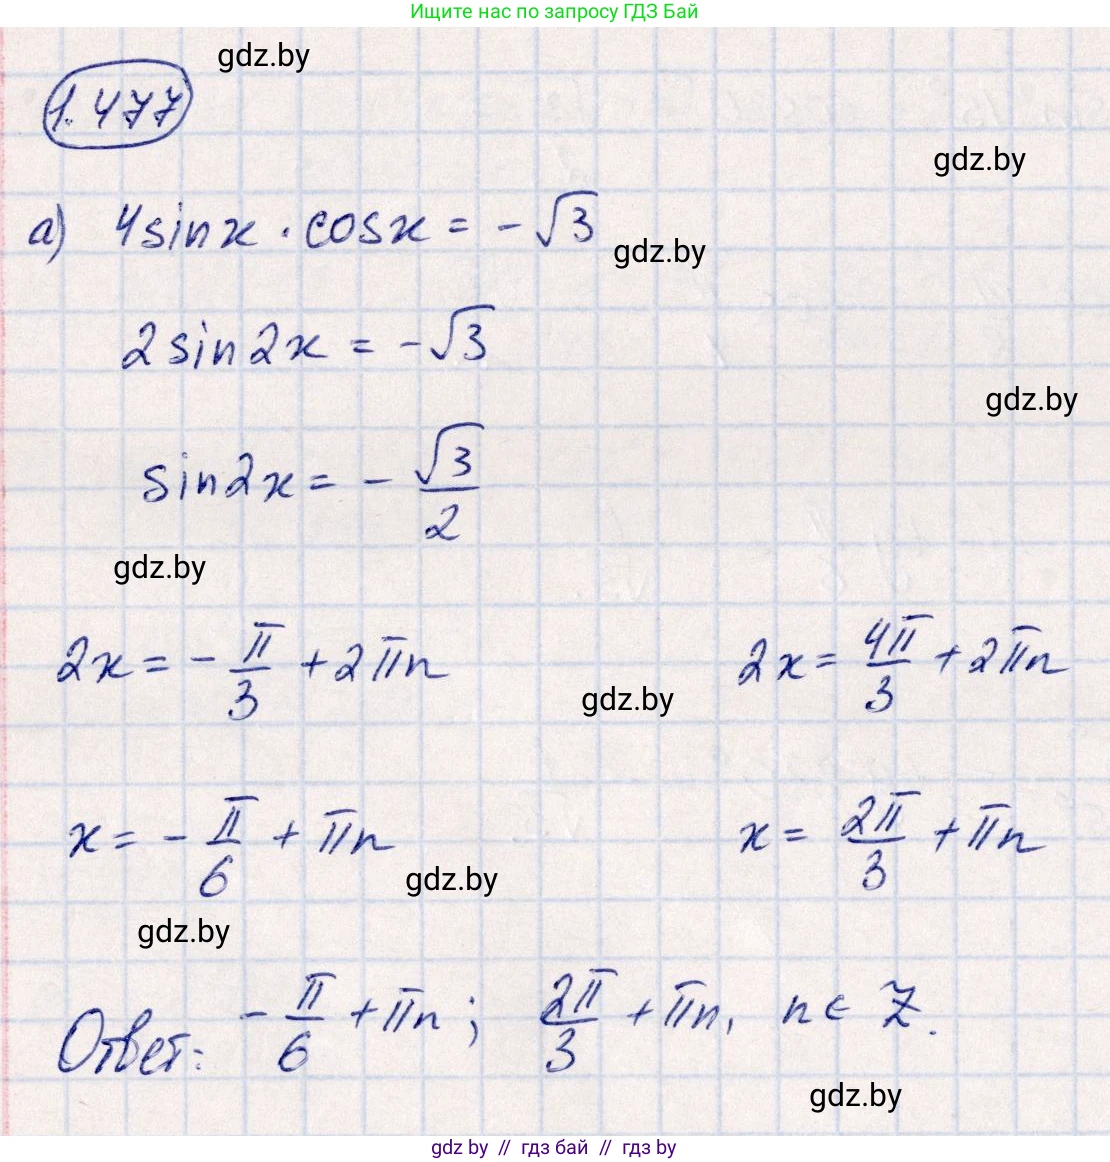 Ищите нас по запросу ГДЗ Бай
gdz.by
1.477
gdz.by
а) 4sinx · cosx = -√3
gdz.by
2sin2x = -√3
gdz.by
sin2x = - √3/2
gdz.by
2x = - π/3 + 2πn 2x = 4π/3 + 2πn
gdz.by
x = - π/6 + πn x = 2π/3 + πn
gdz.by
gdz.by
Ответ: - π/6 + πn; 2π/3 + πn, n ∈ Z.
gdz.by
gdz by // гдз бай // гдз by